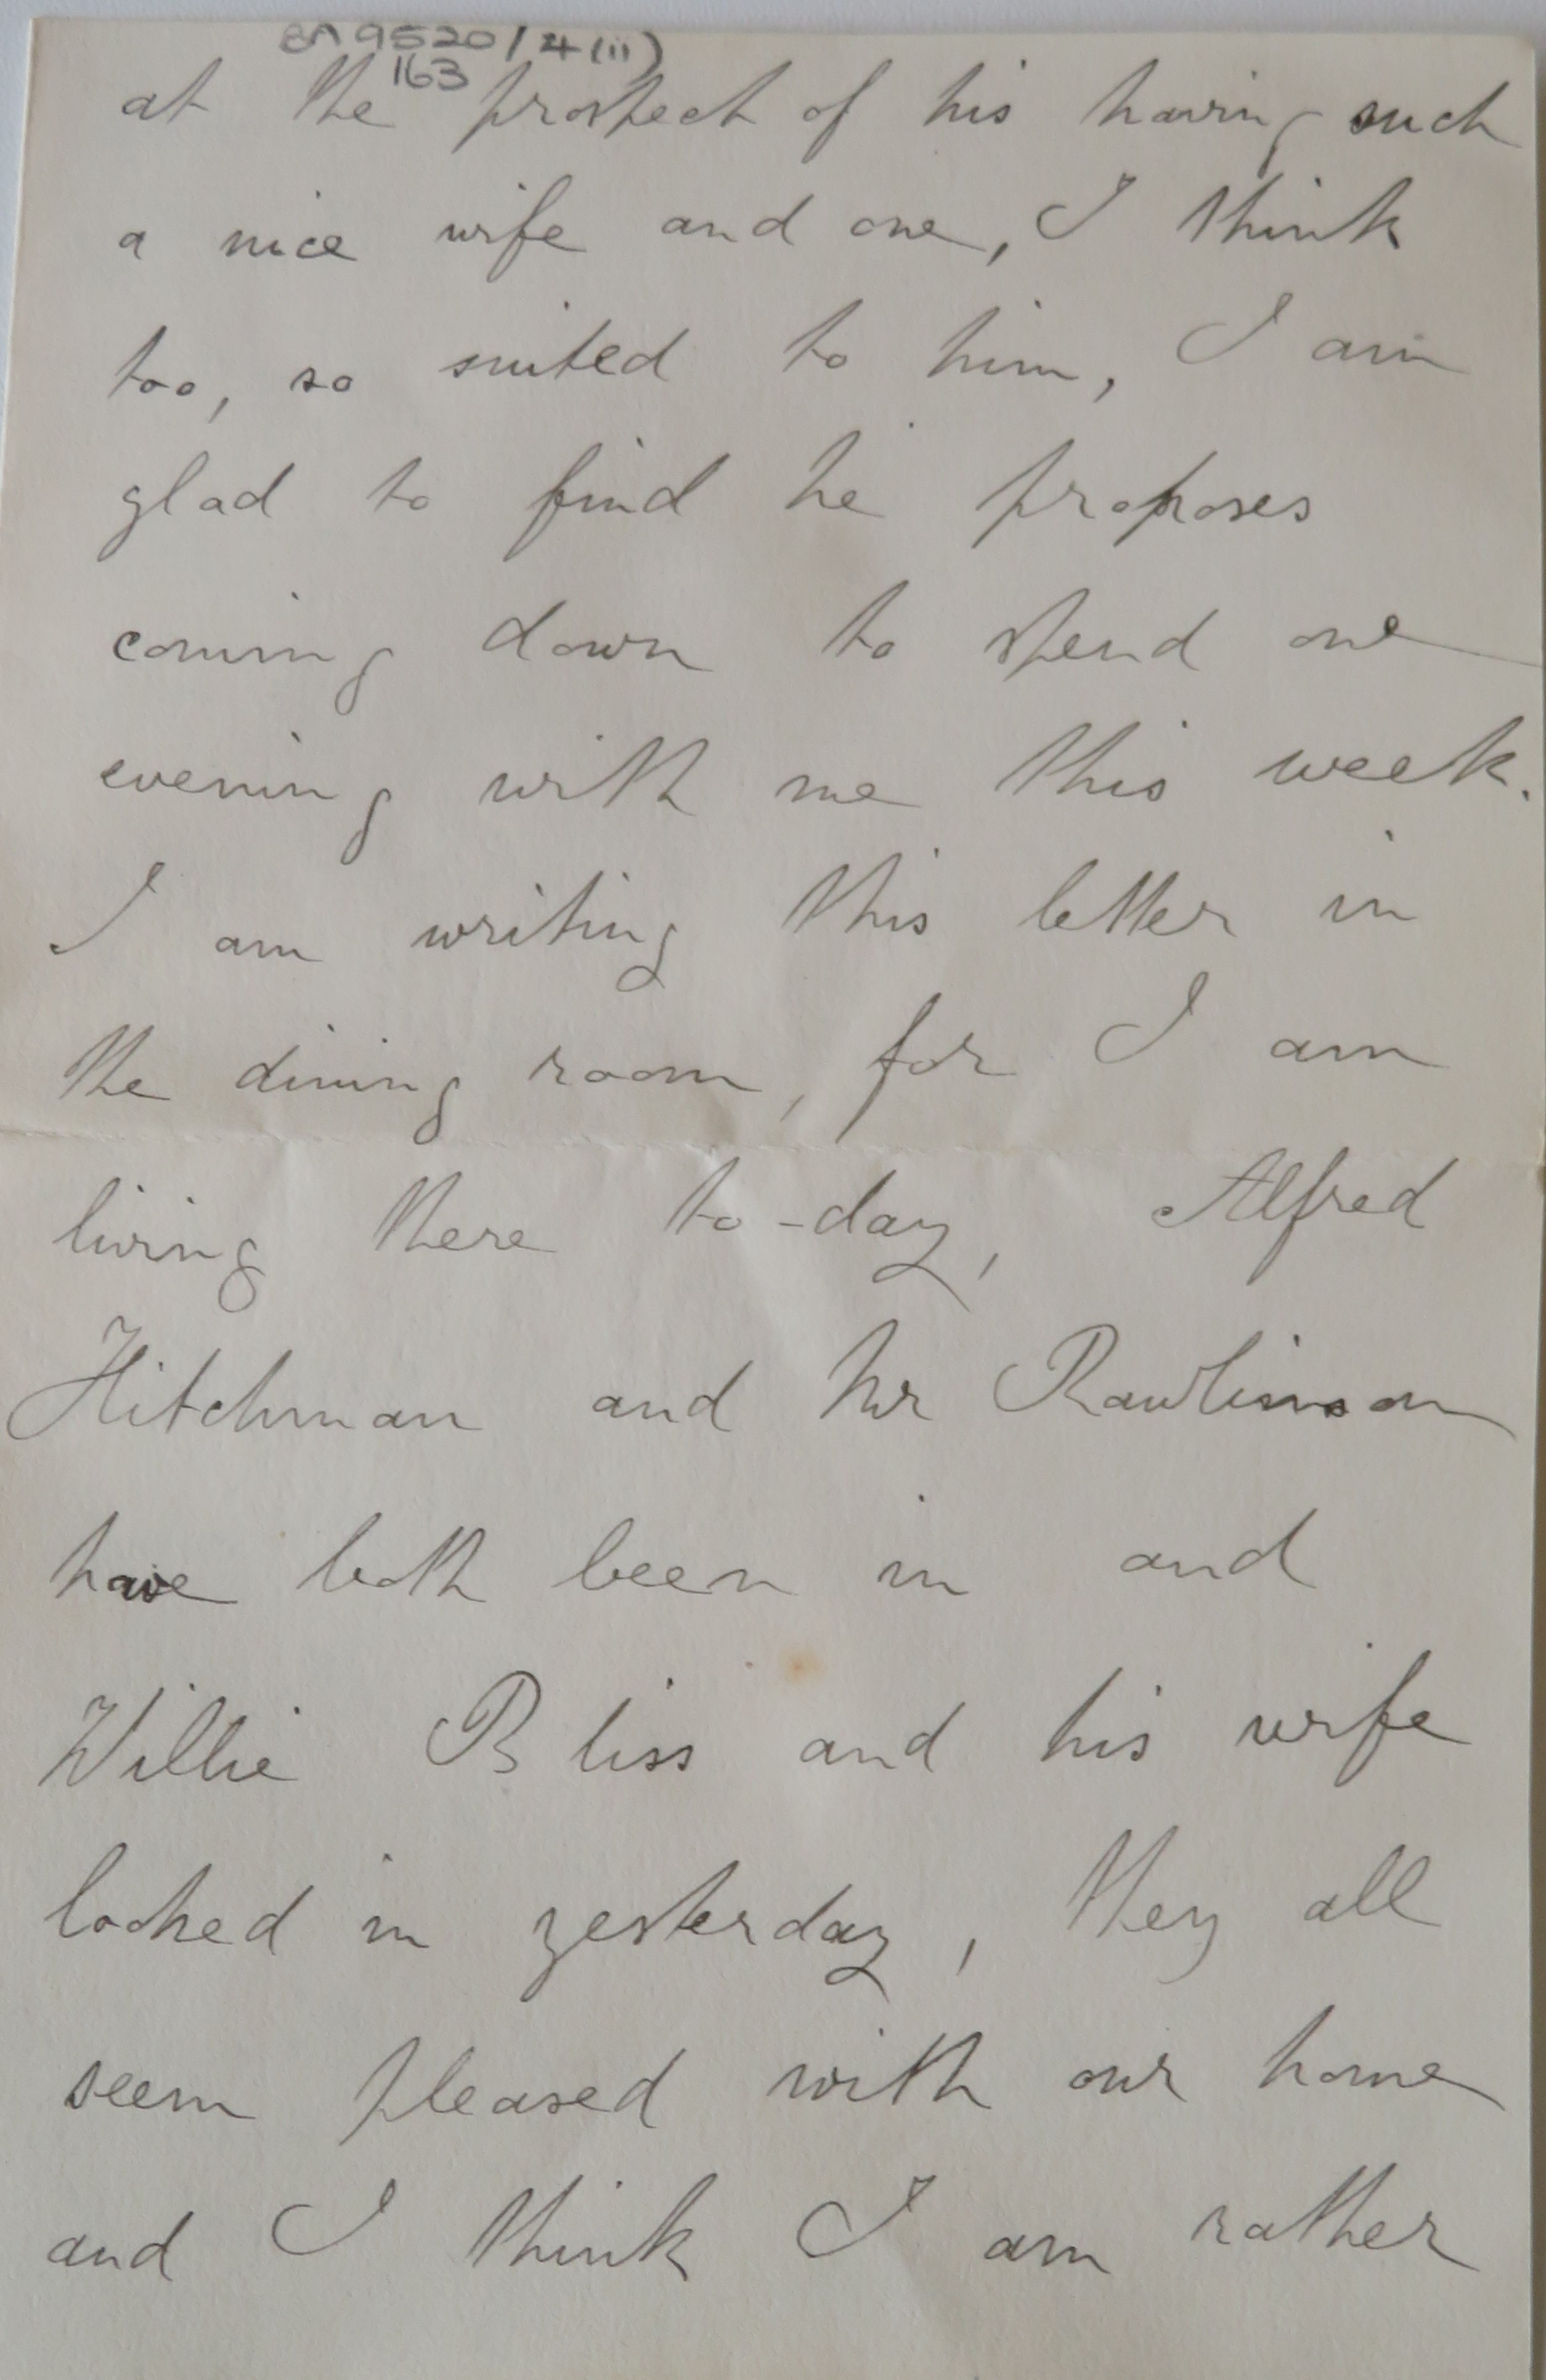 BA 9520/4(ii)
163
at the prospect of his having such
a nice wife and one, I think
too, so suited to him, I am
glad to find he proposes
coming down to spend one
evening with me this week.
I am writing this letter in
the dining room, for I am
living there to-day, Alfred
Hitchman and Mr Rawlinson
have both been in and
Willie Bliss and his wife
looked in yesterday, they all
seem pleased with our home
and I think I am rather